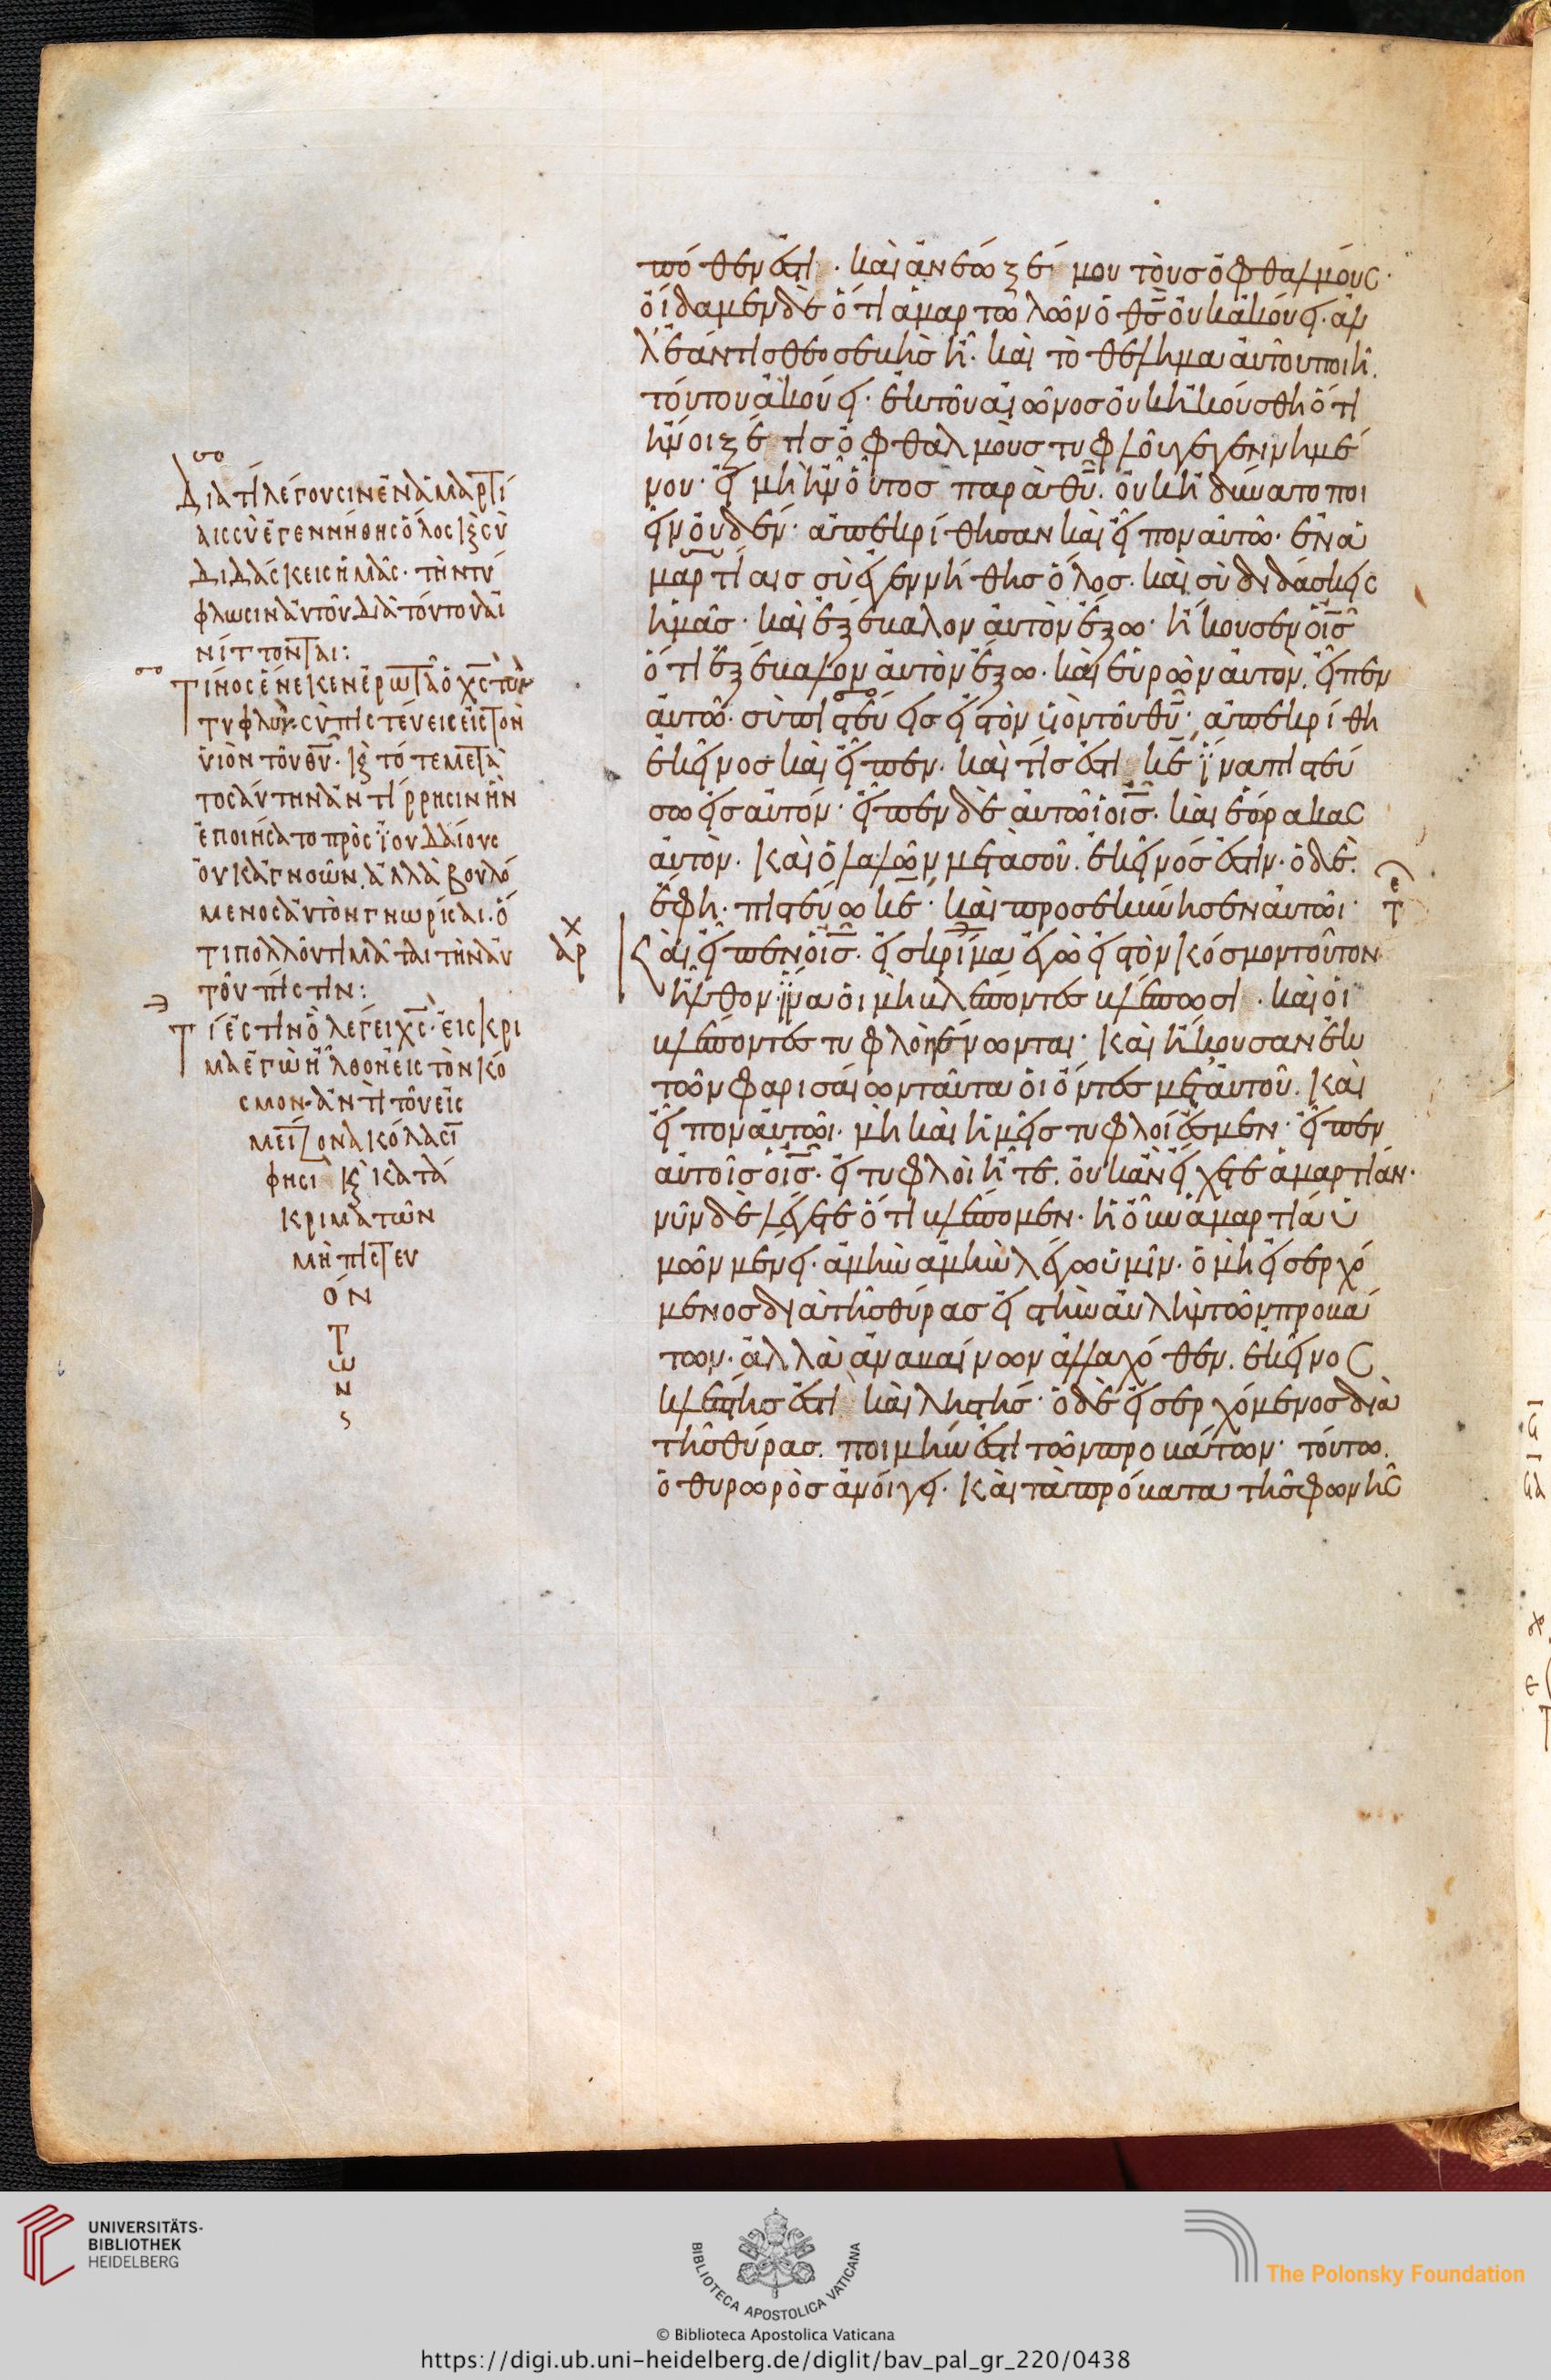 σο
Διατί λέγουσιν ἐν ἁμαρτί
αις σὺ ἐγεννήθης ὅλος κ̀ σὺ
διδάσκεις ἡμᾶς· τὴν τύ
φλωσιν αὐτοῦ διὰ τούτου αἰ
νίττονται:
σο
Τίνος ἕνεκεν ἐρωτᾷ ὁ χ̅ς̅ τὸν
τυφλὸν· σὺ πιστεύεις εἰς τὸν
υἱὸν τοῦ θ̅υ̅· κ̀ τότε μετὰ
τοσαύτην ἀντίρρησιν ἣν
ἐποιήσατο πρὸς ἰουδαίους
οὐκ ἀγνοῶν. ἀλλὰ βουλό
μενος αὐτὸν γνωρίσαι. ὅ
τι πολλοῦ τιμᾶται τὴν αὐ
τοῦ πίστιν:
Τί ἐστιν ὃ λέγει χ̅ς̅· εἰς κρί
μα ἐγὼ ἦλθον εἰς τὸν κό
σμον· ἀντὶ τοῦ εἰς
μείζονα κόλασί
φησὶ κ̀ κατά
κριμα τῶν
μὴ πιστευ
όν
τ
ω
ν
χ
αρ
πόθεν ἐστί· καὶ ἀνέωξέ μου τοὺς ὀφθαλμούς·
οἴδαμεν δὲ ὅτι ἁμαρτωλῶν ὁ θ̅ς̅ οὐκ ἀκούει. ἀλ
λ' ἐάν τις θεοσεβὴς ᾖ. καὶ τὸ θέλημα αὐτοῦ ποιῇ.
τούτου ἀκούει· ἐκ τοῦ αἰῶνος οὐκ ἠκούσθη ὅτι
ἤνοιξέ τις ὀφθαλμοὺς τυφλοῦ γεγεννημέ
νου· εἰ μὴ ἦν οὗτος παρὰ θ̅υ̅. οὐκ ἠδύνατο ποι
εῖν οὐδέν· ἀπεκρίθησαν καὶ εἶπον αὐτῶ· ἐν ἁ
μαρτίαις σὺ ἐγεννήθης ὅλος. καὶ σὺ διδάσκεις
ἡμᾶς· καὶ ἐξέβαλον αὐτὸν ἔξω· ἤκουσεν ὁ ι̅ς̅
ὅτι ἐξέβαλον αὐτὸν ἔξω. καὶ εὑρὼν αὐτὸν. εἶπεν
αὐτῶ· σὺ πιστεύεις εἰς τὸν υἱὸν τοῦ θ̅υ̅· ἀπεκρίθη
ἐκεῖνος καὶ εἶπεν. καὶ τίς ἐστι κ̅ε̅ ἵνα πιστεύ
σω εἰς αὐτόν· εἶπεν δὲ αὐτῶι ὁ ι̅ς̅. καὶ ἑώρακας
αὐτὸν. καὶ ὁ λαλῶν μετὰ σοῦ. ἐκεῖνός ἐστιν. ὁ δὲ.
ἔφη· πιστεύω κ̅ε̅· καὶ προσεκύνησεν αὐτῶι·
Καὶ εἶπεν ὁ ι̅ς̅. εἰς κρίμα ἐγὼ εἰς τὸν κόσμον τοῦτον
ἦλθον. ἵνα οἱ μὴ βλέποντες βλέπωσι. καὶ οἱ
βλέποντες τυφλοὶ γένωνται· καὶ ἤκουσαν ἐκ
τῶν φαρισαίων ταῦτα οἱ ὄντες μετ' αὐτοῦ. καὶ
εἶπον αὐτῶι· μὴ καὶ ἡμεῖς τυφλοί ἐσμεν· εἶπεν
αὐτοῖς ὁ ι̅ς̅. εἰ τυφλοὶ ἦτε. οὐκ ἂν εἴχετε ἁμαρτίαν·
νῦν δὲ λέγετε ὅτι βλέπομεν. ἡ οὖν ἁμαρτία ὑ
μῶν μένει· ἀμὴν ἀμὴν λέγω ὑμῖν. ὁ μὴ εἰσερχό
μενος διὰ τῆς θύρας εἰς τὴν αὐλὴν τῶν προβά
των. ἀλλὰ ἀναβαίνων ἀλλαχόθεν. ἐκεῖνος
κλέπτης ἐστὶ καὶ ληστής· ὁ δὲ εἰσερχόμενος διὰ
τῆς θύρας. ποιμήν ἐστι τῶν προβάτων· τούτω.
ὁ θυρωρὸς ἀνοίγει. καὶ τὰ πρόβατα τῆς φωνῆς
UNIVERSITÄTS-
BIBLIOTHEK
HEIDELBERG
BIBLIOTECA APOSTOLICA VATICANA
The Polonsky Foundation
© Biblioteca Apostolica Vaticana
https://digi.ub.uni-heidelberg.de/diglit/bav_pal_gr_220/0438